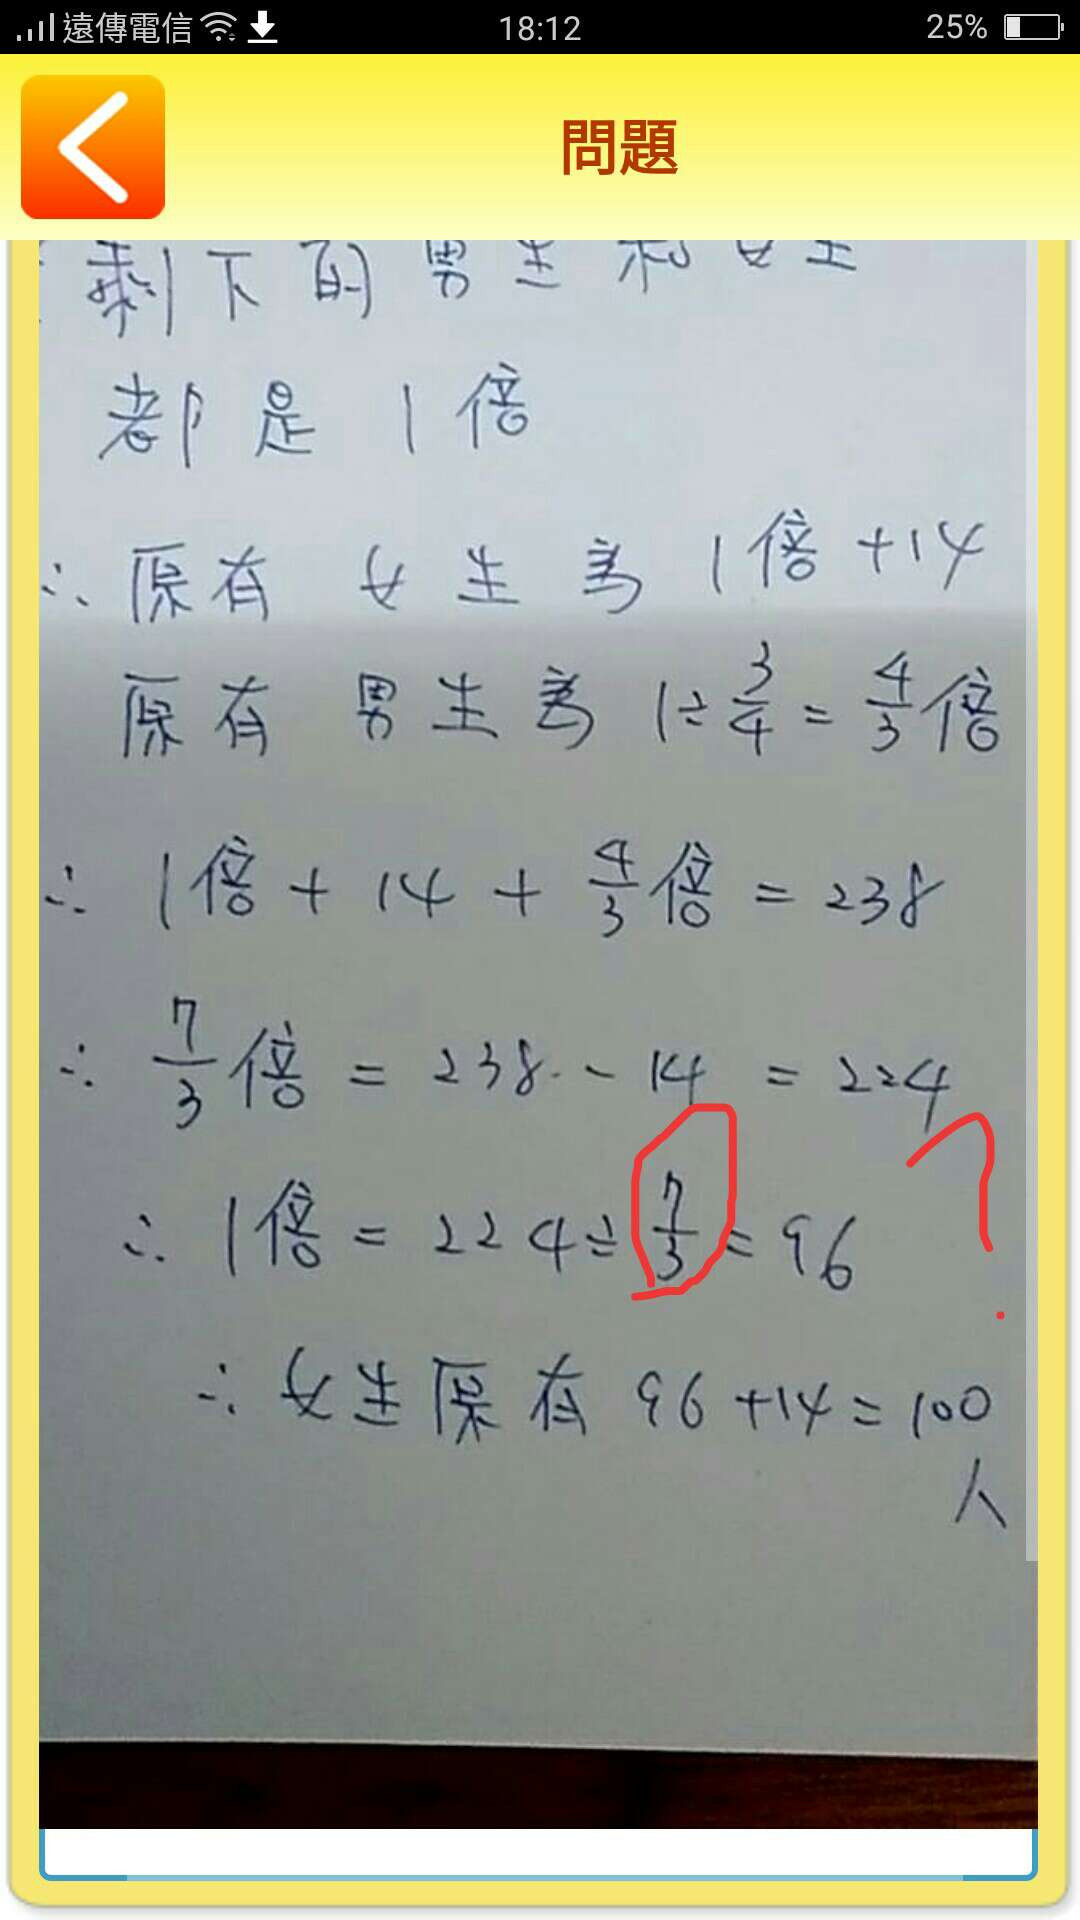 遠傳電信 18:12 25%
問題
剩下的男生和女生
都是1倍
∴原有 女生為 1倍+14
原有 男生為 1÷3/4=4/3倍
∴ 1倍+14+4/3倍=238
∴ 7/3倍=238-14=224
∴ 1倍=224÷7/3=96 ?
∴女生原有 96+14=100
人